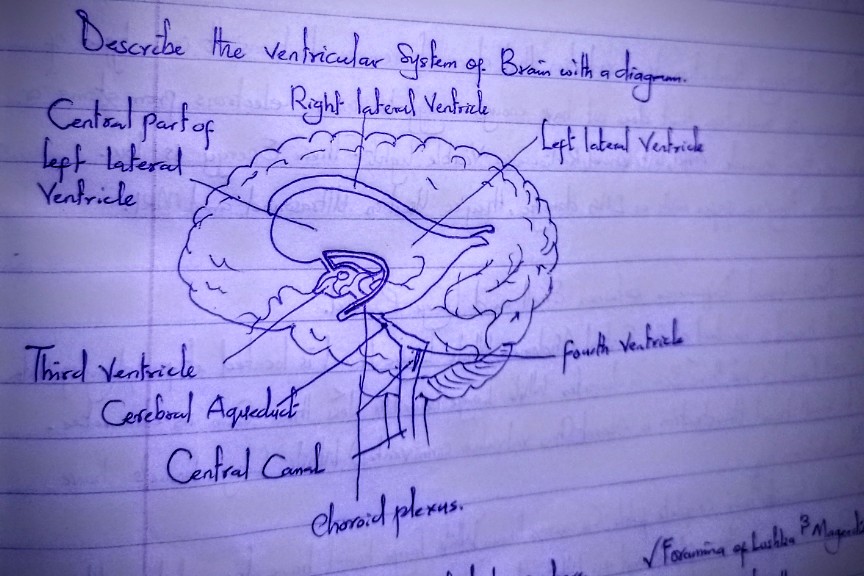 Describe the ventricular System of Brain with a diagram.
Right lateral Ventricle
Central part of
left lateral
Ventricle
Left lateral Ventricle
Third Ventricle
fourth Ventricle
Cerebral Aqueduct
Central Canal
Choroid plexus.
√ Foramina of Lushka 3 Magendi